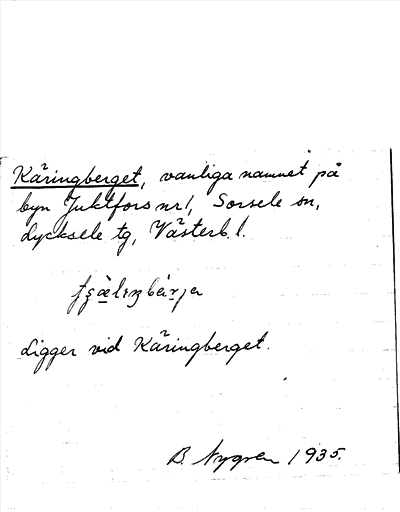 Käringberget, vanliga namnet på
byn Juktfors nr 1, Sorsele sn,
Lycksele tg, Västerb. l.
Ligger vid Käringberget.
B. Nygren 1935.